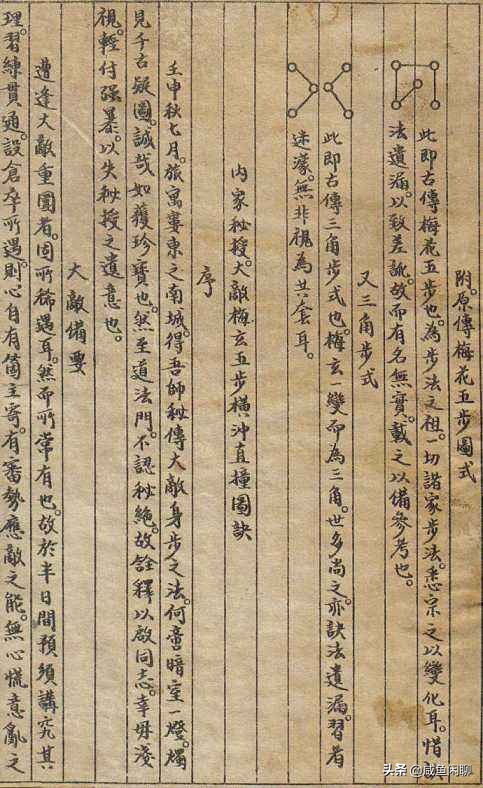 附原傳梅花五步圖式
此即古傳梅花五步也。為步法之祖。一切諸家步法。悉宗之以變化耳。惜訣
法遺漏。以致差訛。故而有名無實。載之以備參考也。
又三角步式
此即古傳三角步式也。梅玄一變而為三角。世多尚之。亦訣法遺漏。習者
迷濛。無非視為其套耳。
內家秘授。大敵梅玄五步橫沖直撞圖訣
序
壬申秋七月。旅寓婁東之南城。得吾師秘傳大敵身步之法。何啻暗室一燈。燭
見千古疑團。誠哉如獲珍寶也。然至道法門。不認秘絕。故詮釋以啟同志。幸毋淺
視。輕付强暴。以失秘授之遺意也。
大敵備要
遭逢大敵重圍者。固所稀遇耳。然而所常有也。故於半日間預須講究其
理。習練貫通。設倉卒所遇。則心自有箇主寄。有審勢應敵之能。無心慌意亂之
头条 @咸鱼闲聊